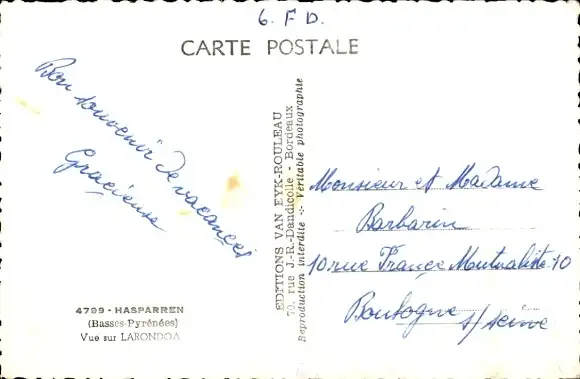 6. F D.
CARTE POSTALE
Bon souvenir de vacances
Gracieuse
4799 - HASPARREN
(Basses-Pyrénées)
Vue sur LARONDOA
EDITIONS VAN EYK-ROULEAU
70, rue J.-R.-Dandicolle - Bordeaux
Reproduction interdite -:- Véritable photographie
Monsieur et Madame
Barbarin
10 rue France Mutualiste 10
Boulogne s/seine